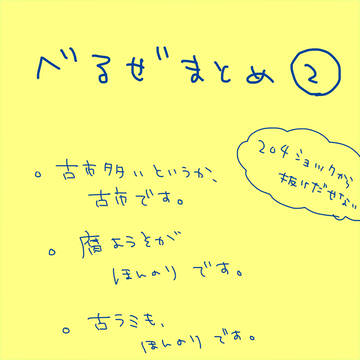 べるぜまとめ②
204ショックから
抜けだせない
。古市多いというか、
古市です。
。腐ようそが
ほんのりです。
。古ラミも、
ほんのりです。